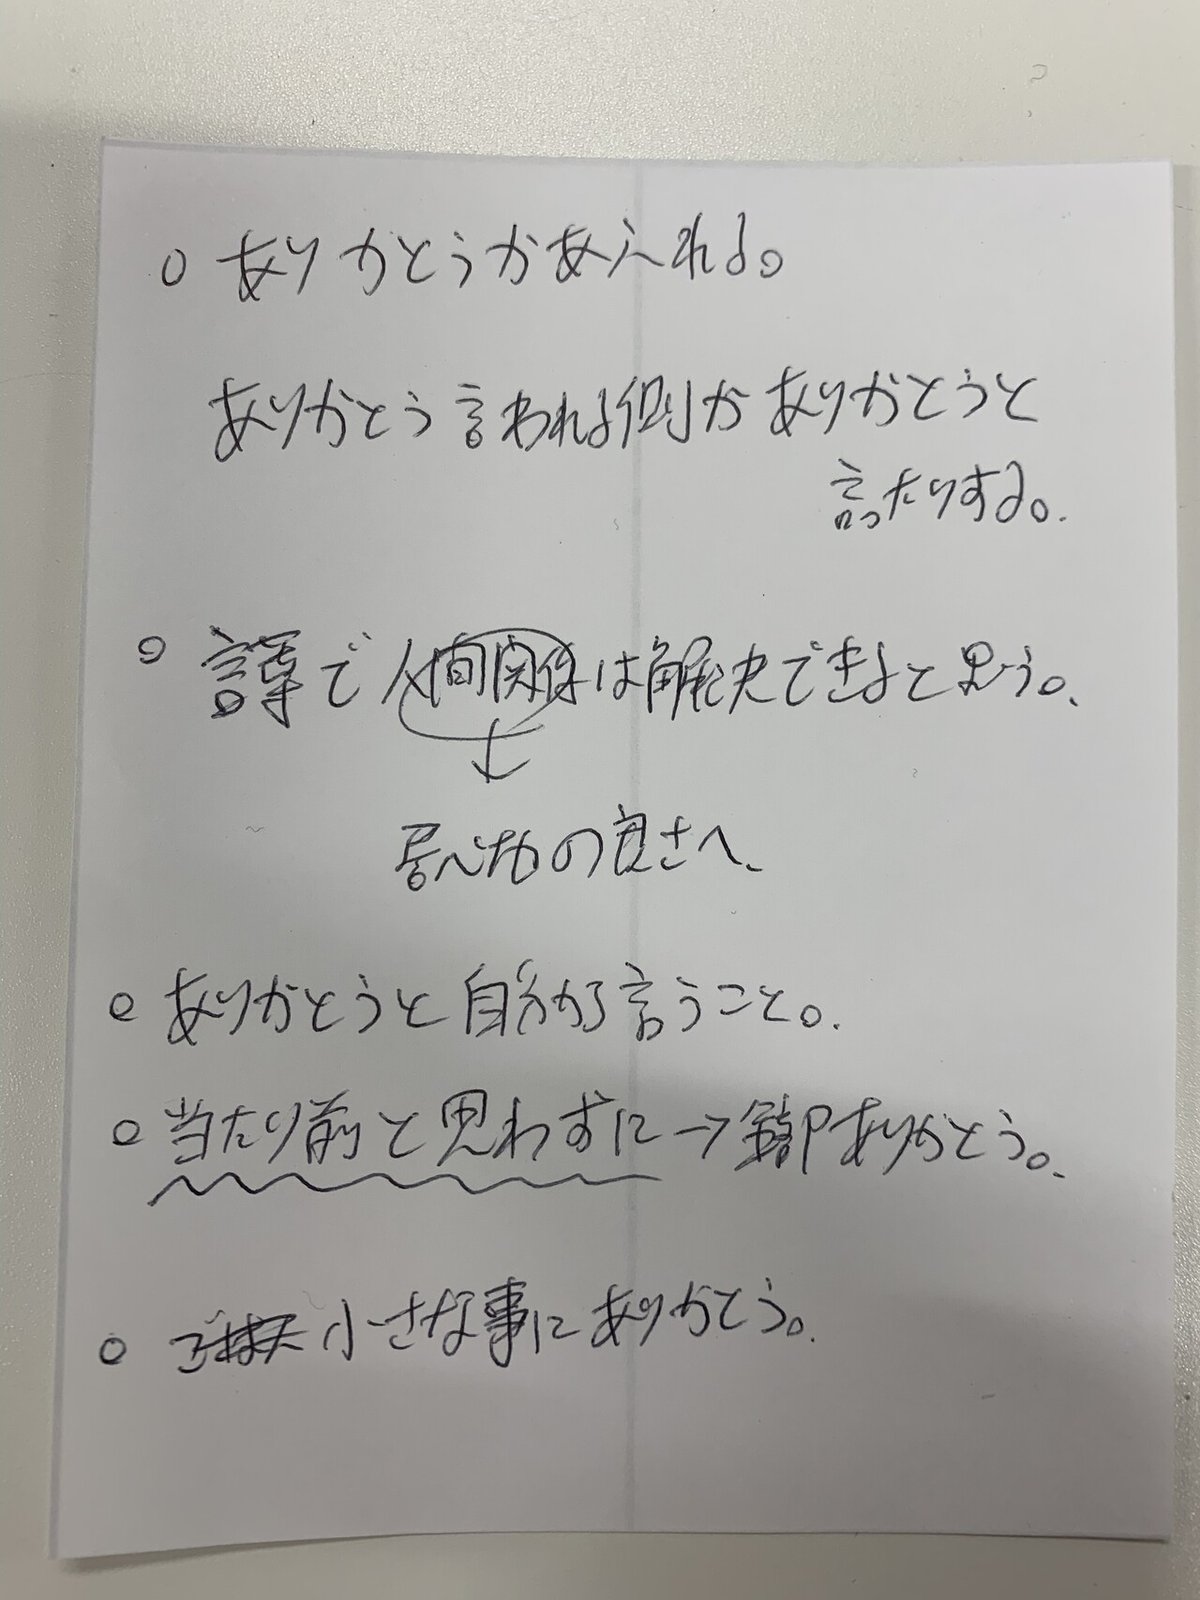 ○ ありがとうがあふれる。
ありがとう言われる側がありがとうと
言ったりする。
○ 言葉で人間関係は解決できると思う。
↓
の良さへ、
○ ありがとうと自分から言うこと。
○ 当たり前と思わずに→全部ありがとう。
○ 小さな事にありがとう。